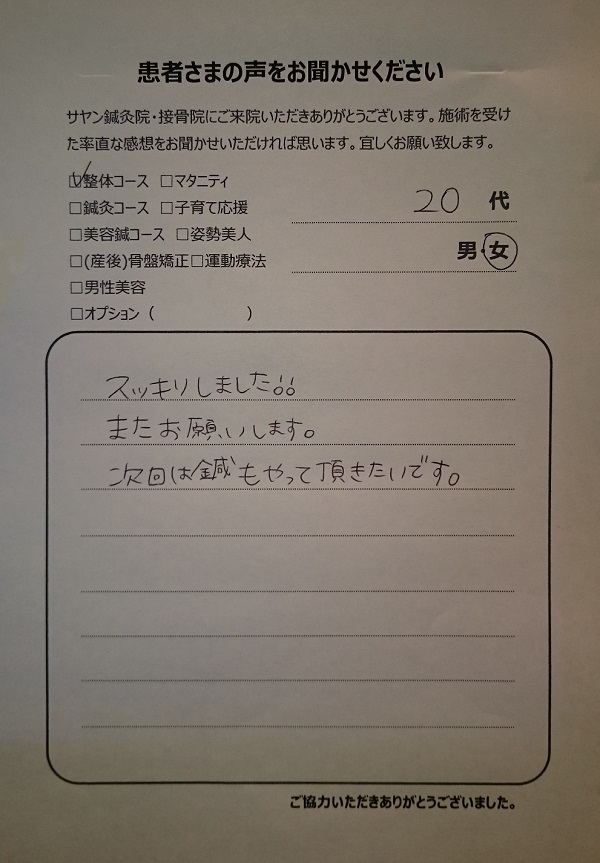 患者さまの声をお聞かせください
サヤン鍼灸院・接骨院にご来院いただきありがとうございます。施術を受け
た率直な感想をお聞かせいただければ思います。宜しくお願い致します。
☑整体コース □マタニティ
□鍼灸コース □子育て応援
20 代
□美容鍼コース □姿勢美人
男・女
□(産後)骨盤矯正□運動療法
□男性美容
□オプション（　　　　　　）
スッキリしました!!
またお願いします。
次回は鍼もやって頂きたいです。
ご協力いただきありがとうございました。